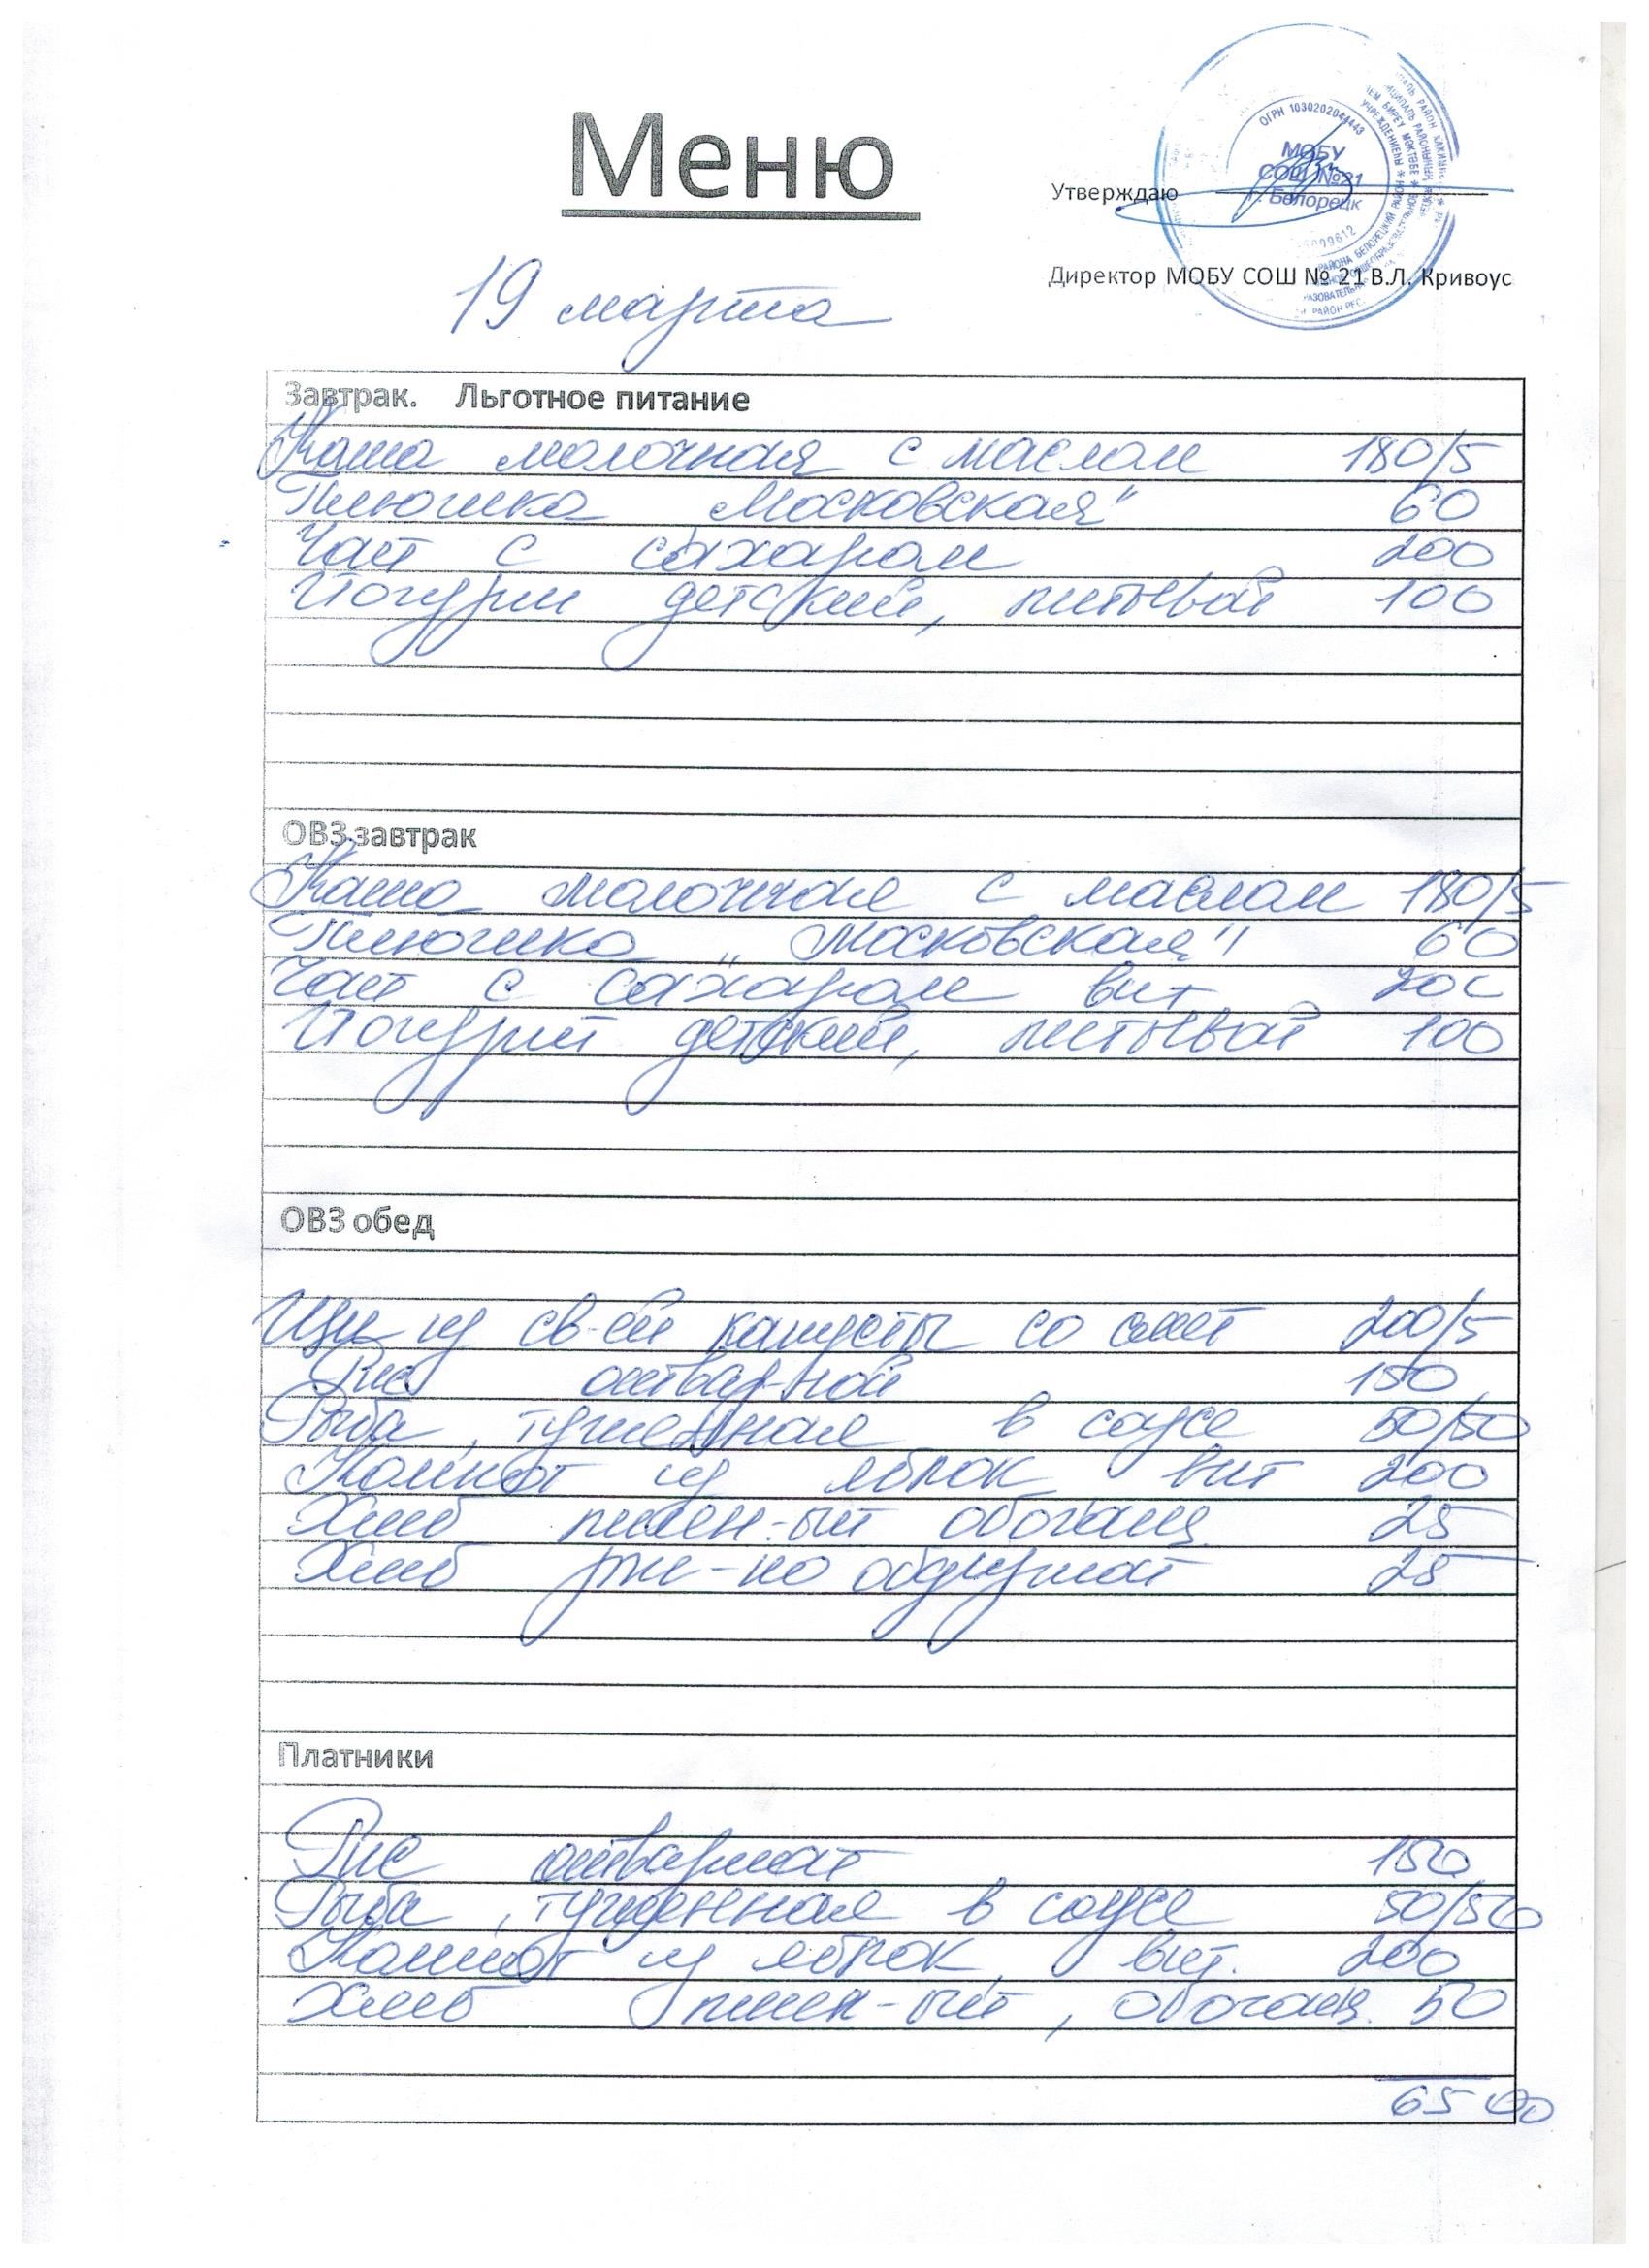 Меню
ОГРН 1030202044443
МОБУ
СОШ №21
г. Белорецк
Утверждаю
Директор МОБУ СОШ № 21 В.Л. Кривоус
19 марта
Завтрак. Льготное питание
Каша молочная с маслом 180/5
Плюшка Московская" 60
Чай с сахаром 200
Йогурт детский, питьевой 100
ОВЗ завтрак
Каша молочная с маслом 180/5
Плюшка „Московская" 60
Чай с сахаром вит 200
Йогурт детский, питьевой 100
ОВЗ обед
Щи из св-ей капусты со смет 200/5
Рис отвар-ной 150
Рыба, тушенная в соусе 50/50
Компот из яблок вит 200
Хлеб пшен-ый обогащ. 25
Хлеб рж-но обдирной 25
Платники
Рис отварной 150
Рыба, тушенная в соусе 50/50
Компот из яблок, вит. 200
Хлеб пшен-ый, обогащ. 50
65 00